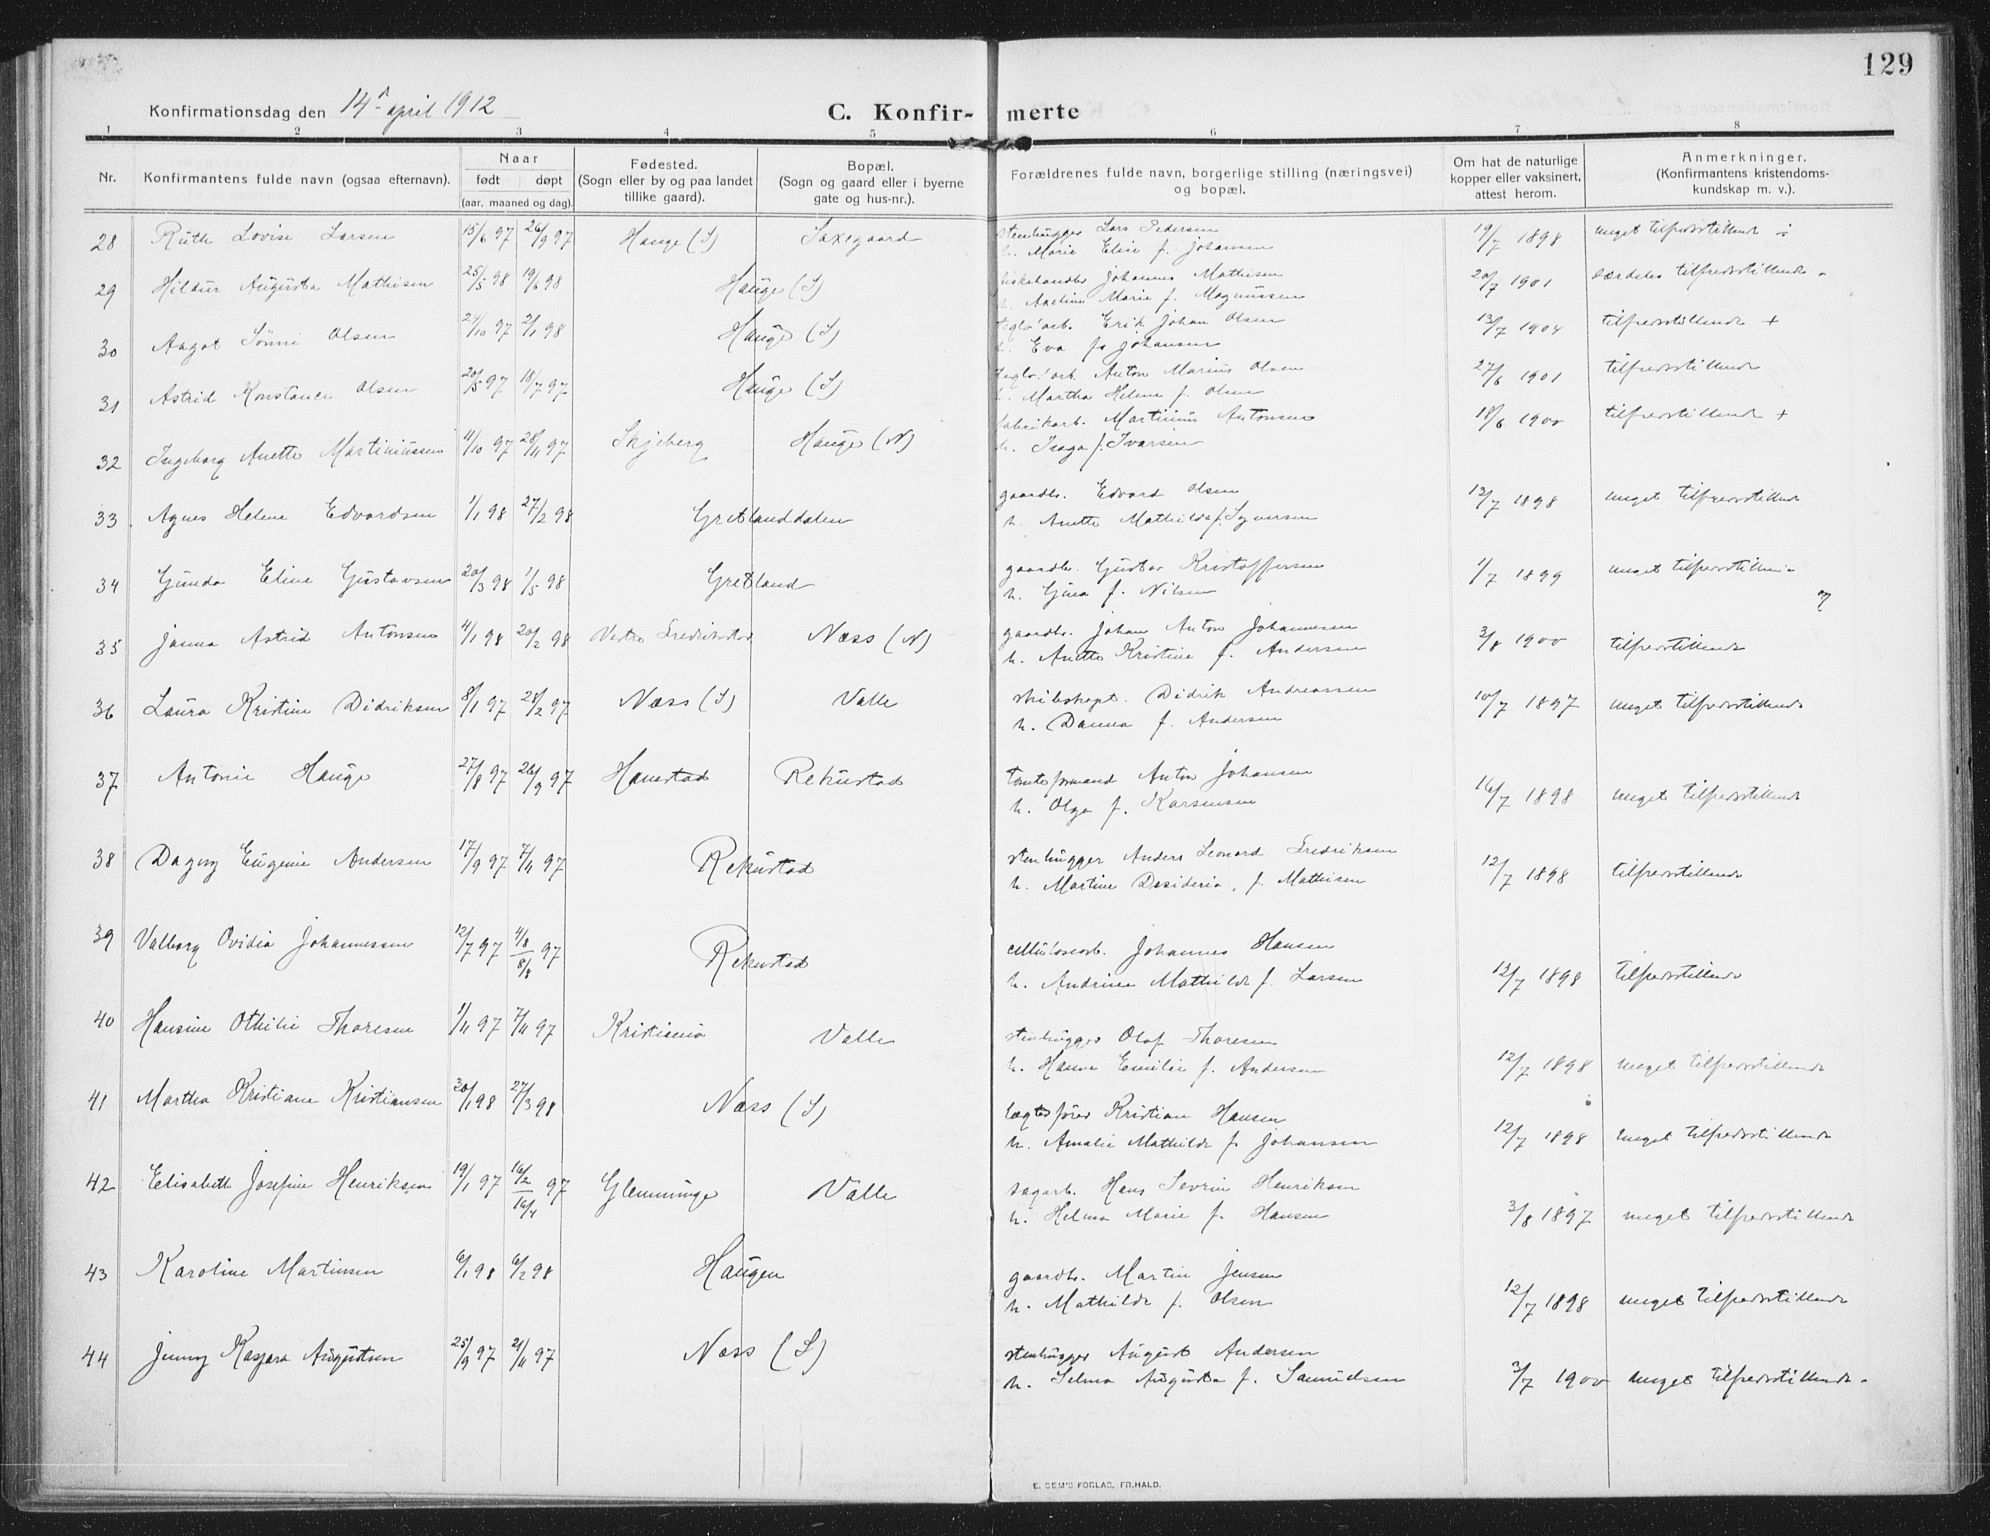 129
Konfirmationsdag den 14de april 1912
C. Konfir- merte
1 2 3 4 5 6 7 8
Nr.
Konfirmantens fulde navn (ogsaa efternavn).
Naar
født døpt
(aar, maaned og dag).
Fødested.
(Sogn eller by og paa landet
tillike gaard).
Bopæl.
(Sogn og gaard eller i byerne
gate og hus-nr.).
Forældrenes fulde navn, borgerlige stilling (næringsvei)
og bopæl.
Om hat de naturlige
kopper eller vaksinert,
attest herom.
Anmerkninger.
(Konfirmantens kristendoms-
kundskap m. v.).
28 Ruth Lovise Larsen 15/6 97 26/9 97 Hauge (S) Saxegaard stenhugger Lars Pedersen 19/7 1898 meget tilfredsstillende ÷
h. Marie Elise f. Johansen
29 Hildur Augusta Mathisen 25/5 98 19/6 98 Hauge (S) fiskehandler Johannes Mathisen 20/7 1901 særdeles tilfredsstillende
h. Axeline Marie f. Magnussen
30 Aagot Sønni Olsen 24/10 97 2/1 98 Hauge (S) teglv.arb. Erik Johan Olsen 13/7 1904 tilfredsstillende +
h. Eva f. Johansen
31 Astrid Konstance Olsen 20/5 97 18/7 97 Hauge (S) teglv.arb. Anton Marius Olsen 27/6 1901 tilfredsstillende
h. Martha Helene f. Olsen
32 Ingeborg Anette Martiniussen 4/10 97 28/11 97 Skjeberg Hauge (N) fabrikarb. Martinius Antonsen 18/6 1900 tilfredsstillende +
h. f. Ivarsen
33 Agnes Helene Edvardsen 1/1 98 27/2 98 Gretlanddalen gaardbr. Edvard Olsen 12/7 1898 meget tilfredsstillende
h. Anette Mathilde f. Syversen
34 Gunda Eline Gustavsen 20/3 98 1/5 98 Gretland gaardbr. Gustav Kristoffersen 1/7 1899 meget tilfredsstillende
h. Gina f. Nilsen
35 Janna Astrid Antonsen 4/1 98 20/2 98 Vestre Fredrikstad Næss (N) gaardbr. Johan Anton Johannesen 3/8 1900 tilfredsstillende
h. Anette Kristine f. Andersen
36 Laura Kristine Didriksen 8/1 97 28/2 97 Næss (S) Valle skibskapt. Didrik Andreassen 10/7 1897 meget tilfredsstillende
h. Danna f. Andersen
37 Antonie Hauge 27/8 97 26/9 97 Hanestad Rekustad tomteformand Anton Johansen 16/7 1898 meget tilfredsstillende
h. Olga f. Karsensen
38 Dagny Eugenie Andersen 17/9 97 7/11 97 Rekustad stenhugger Anders Leonard Fredriksen 12/7 1898 tilfredsstillende
h. Martine Desideria, f. Mathisen
39 Valborg Ovidia Johannessen 12/7 97 4/8 8/8 97 Rekustad cellulosearb. Johannes Hansen 12/7 1898 tilfredsstillende
h. Andrine Mathilde f. Larsen
40 Hansine Othilie Thoresen 1/11 97 7/11 97 Kristiania Valle stenhugger Olaf Thoresen
h. Hanna Emilie f. Andersen 12/7 1898 meget tilfredsstillende
41 Martha Kristiane Kristiansen 30/1 98 27/3 98 Næss (S) lægtefører Kristian Hansen
h. Amalie Mathilde f. Johansen 12/7 1898 meget tilfredsstillende
42 Elisabeth Josefine Henriksen 19/1 97 16/2 16/4 97 Glemminge Valle sagarb. Hans Sevrin Henriksen
h. Helma Marie f. Hansen 3/8 1897 meget tilfredsstillende
43 Karoline Martinsen 6/1 98 6/2 98 Haugen gaardbr. Martin Jensen
h. Mathilde f. Olsen 12/7 1898 meget tilfredsstillende
44 Jenny Kaspara Augustsen 25/9 97 21/11 97 Næss (S) stenhugger August Andersen
h. Selma Augusta f. Samuelsen 3/7 1900 meget tilfredsstillende
E. SEM'S FORLAG, FR.HALD.